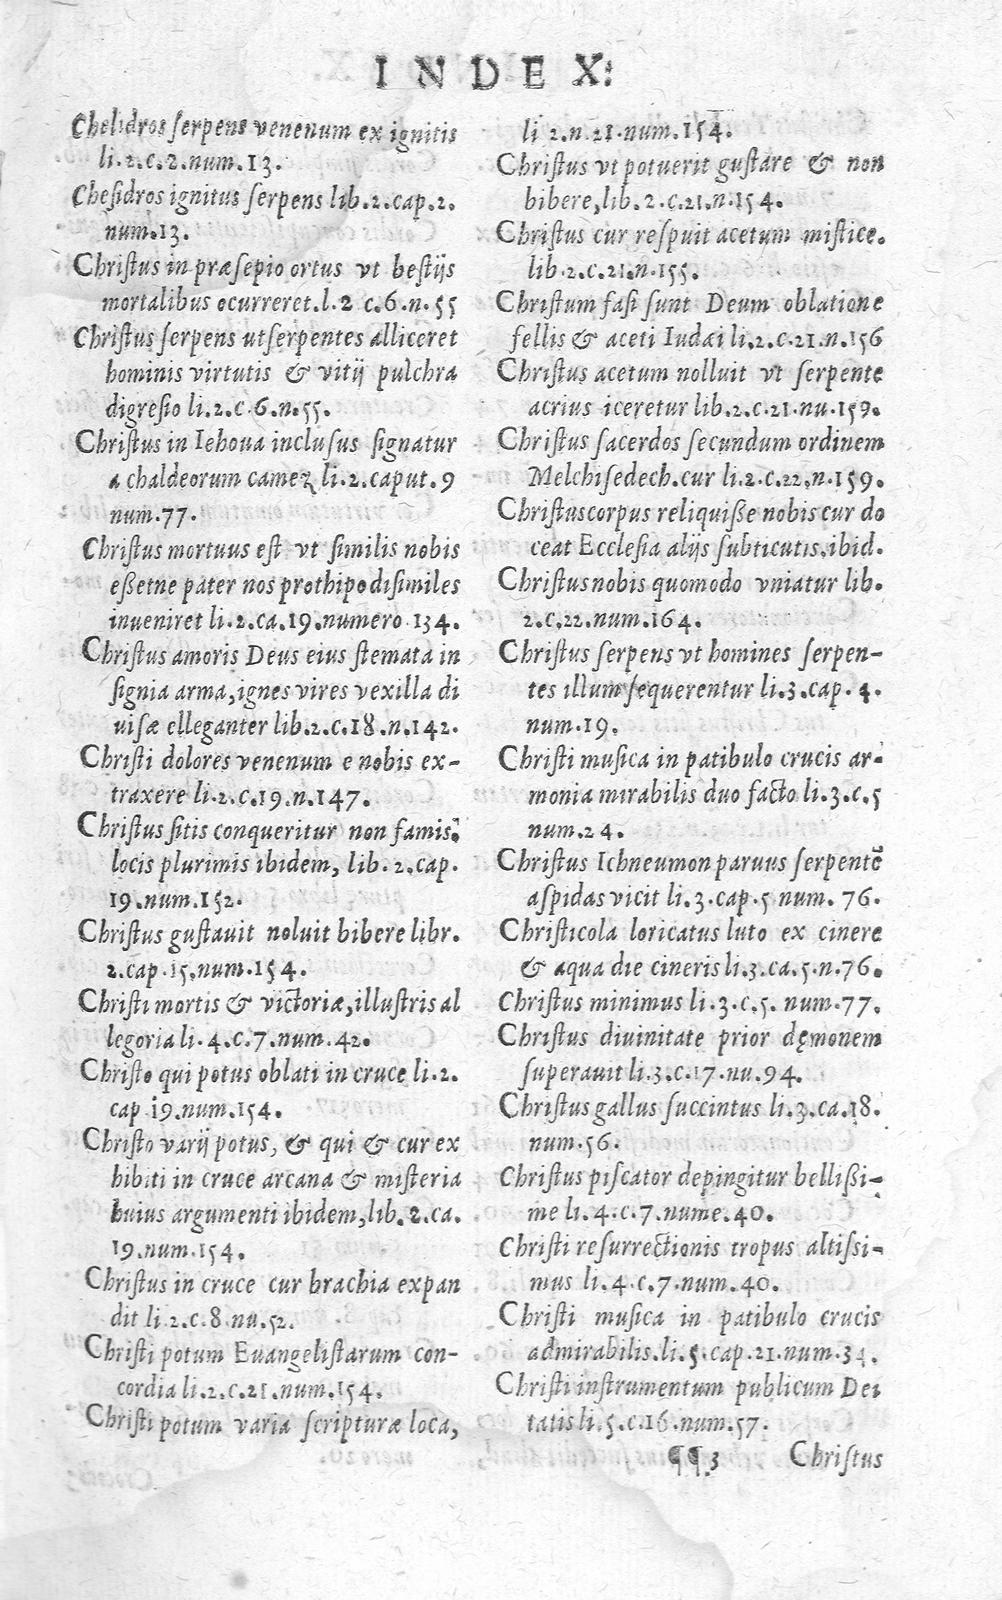 INDEX:
Chelidros ſerpens venenum ex ignitis
li.2.c.2.num.13.
Cheſidros ignitus ſerpens lib.2.cap.2.
num.13.
Chriſtus in præſepio ortus vt beſtijs
mortalibus ocurreret.l.2 c.6.n.55
Chriſtus ſerpens utſerpentes alliceret
hominis virtutis & vitij pulchra
digreſio li.2.c.6.n.55.
Chriſtus in Iehoua incluſus ſignatur
a chaldeorum camez li.2.caput.9
num.77.
Chriſtus mortuus eſt vt ſimilis nobis
eßetne pater nos prothipo diſimiles
inueniret li.2.ca.19.numero 134.
Chriſtus amoris Deus eius ſtemata in
ſignia arma,ignes vires vexilla di
uiſæ elleganter lib.2.c.18.n.142.
Chriſti dolores venenum e nobis ex-
traxere li.2.c.19.n.147.
Chriſtus ſitis conqueritur non famis.
locis plurimis ibidem, lib.2.cap.
19.num.152.
Chriſtus guſtauit noluit bibere libr.
2.cap.15,num.154.
Chriſti mortis & victoriæ,illuſtris al
legoria li.4.c.7.num.42.
Chriſto qui potus oblati in cruce li.2.
cap 19.num.154.
Chriſto varij potus, & qui & cur ex
hibiti in cruce arcana & miſteria
huius argumenti ibidem,lib.2.ca.
19.num.154.
Chriſtus in cruce cur brachia expan
dit li.2.c.8.nu.52.
Chriſti potum Euangeliſtarum con-
cordia li.2.c.21.num.154.
Chriſti potum varia ſcripturæ loca,
li 2.n.21.num.154.
Chriſtus vt potuerit guſtare & non
bibere,lib.2.c.21.n.154.
Chriſtus cur reſpuit acetum miſtice.
lib.2.c.21.n.155.
Chriſtum faſi ſunt Deum oblatione
fellis & aceti Iudæi li.2.c.21.n.156
Chriſtus acetum nolluit vt ſerpente
acrius iceretur lib.2.c.21.nu.159.
Chriſtus ſacerdos ſecundum ordinem
Melchiſedech.cur li.2.c.22.n.159.
Chriſtuscorpus reliquiße nobis cur do
ceat Eccleſia alijs ſubticutis.ibid.
Chriſtus nobis quomodo vniatur lib.
2.c.22.num.164.
Chriſtus ſerpens vt homines ſerpen-
tes illum ſequerentur li.3.cap.4.
num.19.
Chriſti muſica in patibulo crucis ar-
monia mirabilis duo facto li.3.c.5
num.24.
Chriſtus Ichneumon paruus ſerpentē
aſpidas vicit li.3.cap.5 num.76.
Chriſticola loricatus luto ex cinere
& aqua die cineris li.3.ca.5.n.76.
Chriſtus minimus li.3.c.5. num.77.
Chriſtus diuinitate prior dęmonem
ſuperauit li.3.c.17.nu.94.
Chriſtus gallus ſuccintus li.3.ca.18.
num.56.
Chriſtus piſcator depingitur bellißi-
me li.4.c.7.nume.40.
Chriſti reſurrectionis tropus altiſsi-
mus li.4.c.7.num.40.
Chriſti muſica in patibulo crucis
admirabilis.li.5.cap.21.num.34.
Chriſti inſtrumentum publicum Dei
tatis li.5.c.16.num.57.
¶¶3 Chriſtus